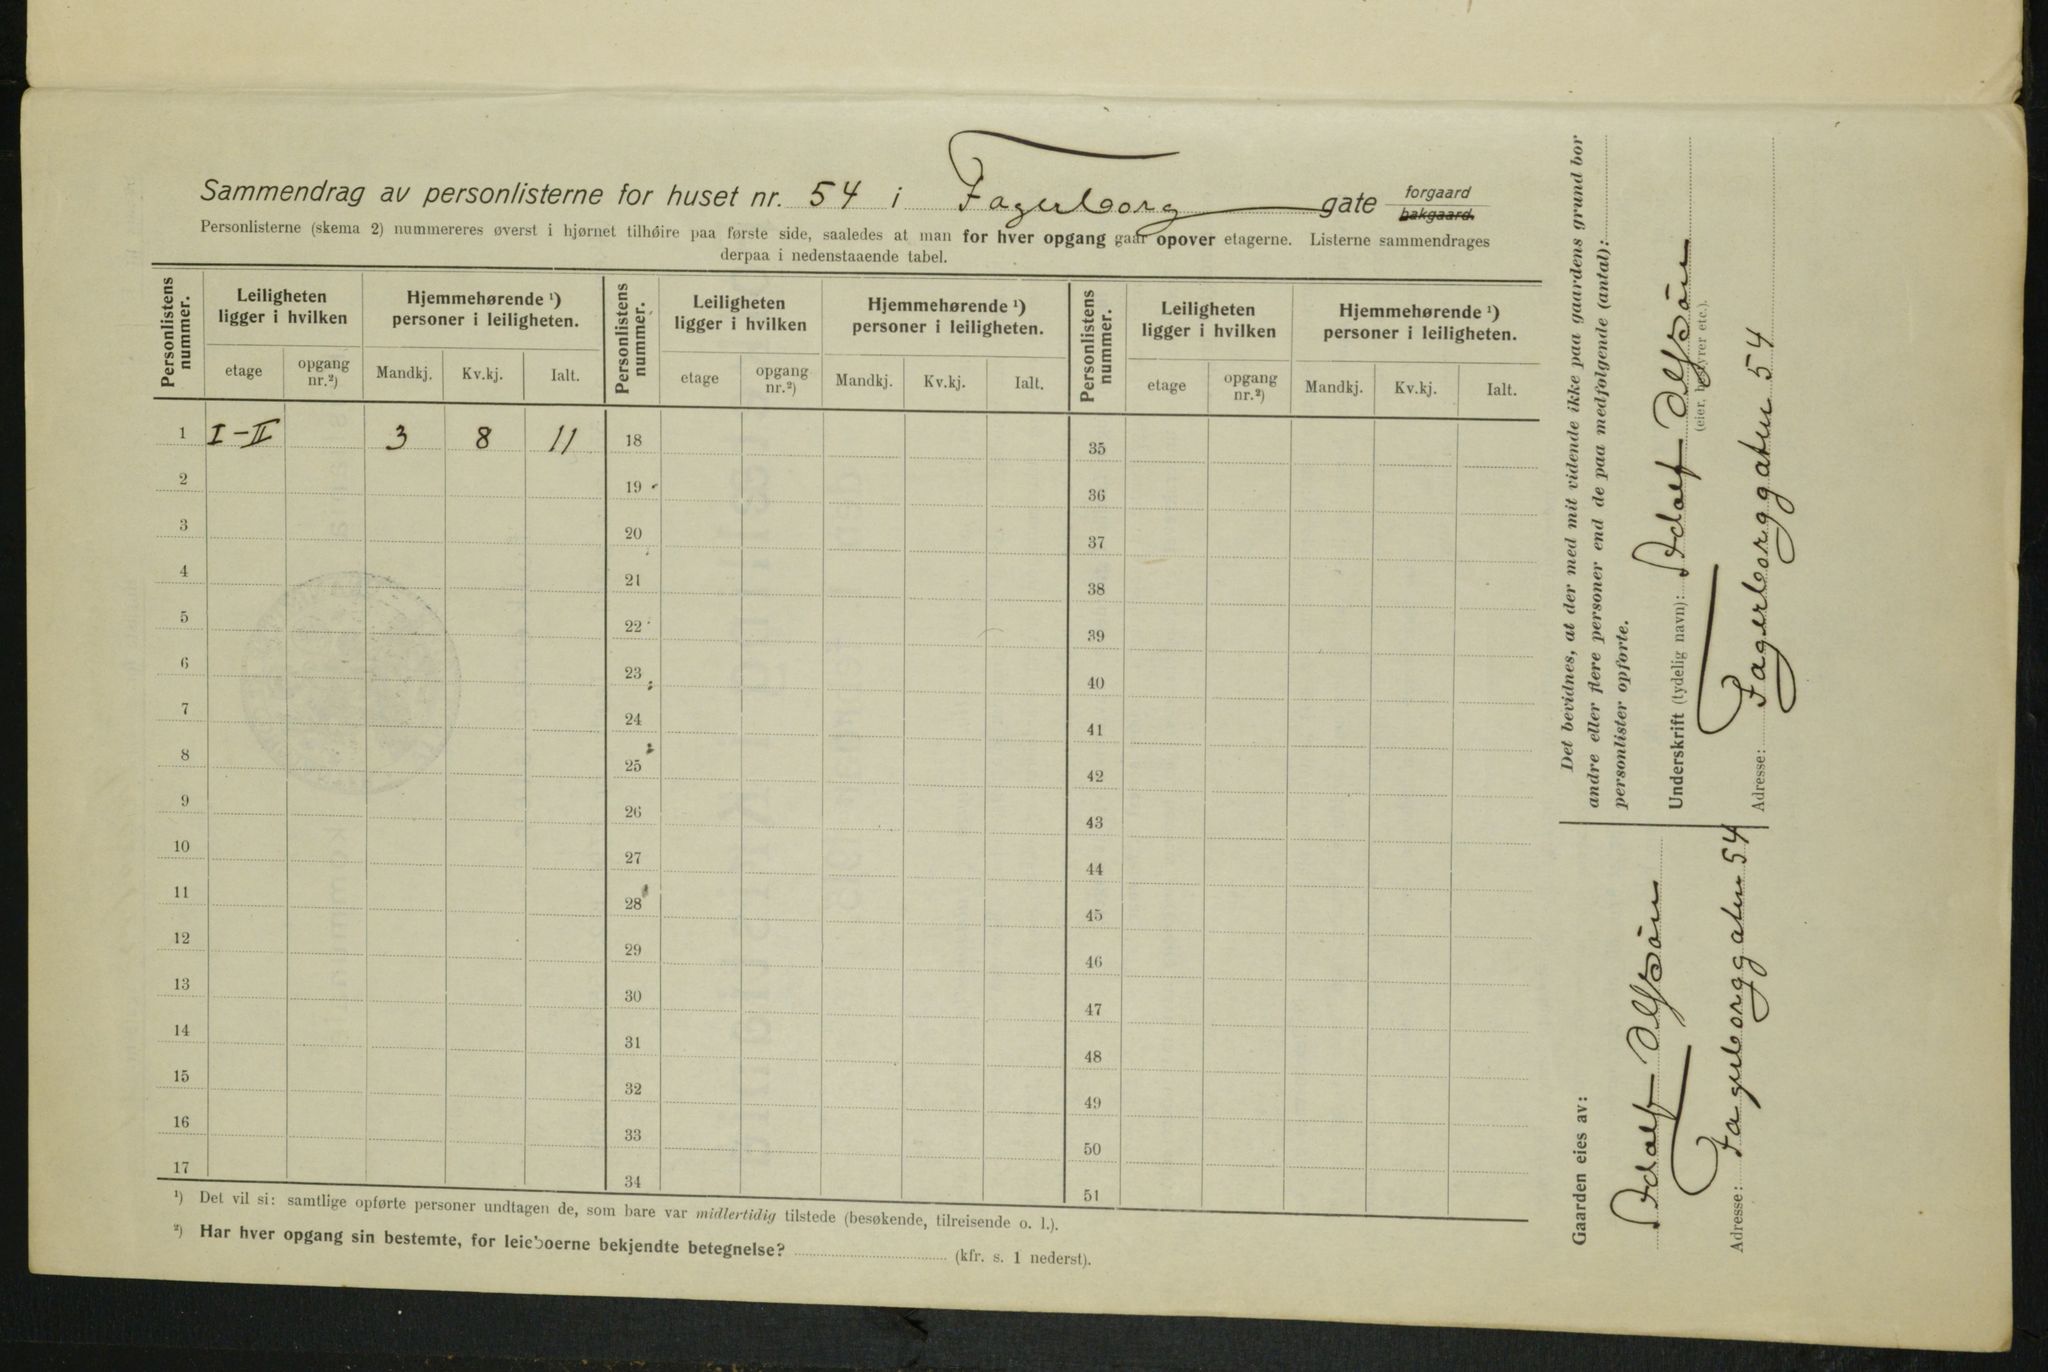 Sammendrag av personlisterne for huset nr. 54 i Fagerborg gate forgaard bakgaard.
Personlisterne (skema 2) nummereres øverst i hjørnet tilhöire paa første side, saaledes at man for hver opgang gaar opover etagerne. Listerne sammendrages
derpaa i nedenstaaende tabel.
Personlistens nummer. Leiligheten ligger i hvilken Hjemmehørende ¹) personer i leiligheten. Personlistens nummer. Leiligheten ligger i hvilken Hjemmehørende ¹) personer i leiligheten. Personlistens nummer. Leiligheten ligger i hvilken Hjemmehørende ¹) personer i leiligheten.
etage opgang nr.²) Mandkj. Kv.kj. Ialt. etage opgang nr.²) Mandkj. Kv.kj. Ialt. etage opgang nr.²) Mandkj. Kv.kj. Ialt.
1 I-II 3 8 11 18 35
2 19 36
3 20 37
4 21 38
5 22 39
6 23 40
7 24 41
8 25 42
9 26 43
10 27 44
11 28 45
12 29 46
13 30 47
14 31 48
15 32 49
16 33 50
17 34 51
¹) Det vil si: samtlige opførte personer undtagen de, som bare var midlertidig tilstede (besøkende, tilreisende o. l.).
²) Har hver opgang sin bestemte, for leieboerne bekjendte betegnelse? (kfr. s. 1 nederst).
Det bevidnes, at der med mit vidende ikke paa gaardens grund bor
andre eller flere personer end de paa medfølgende (antal):
personlister opførte.
Underskrift (tydelig navn): Adolf
(eier, bestyrer etc.).
Adresse: Fagerborggaten 54
Gaarden eies av:
Adolf
Adresse: Fagerborggaten 54